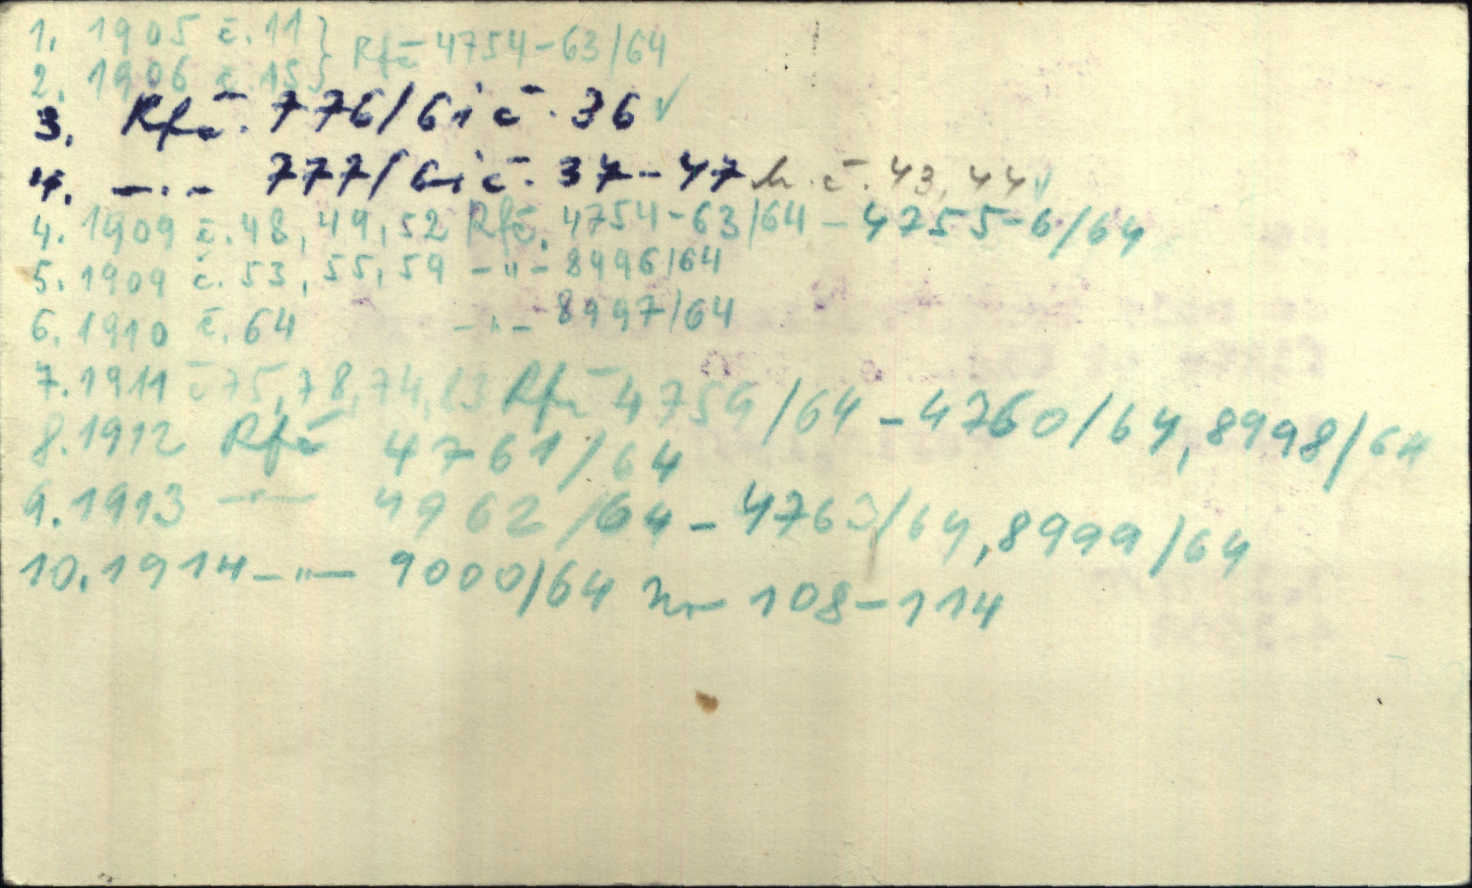 1. 1905 č. 11 } Rfč 4754-63/64
2. 1906 č. 15 }
3. Rfč. 776/61 č. 36 ✓
4. —"— 777/61 č. 37-47 b. č. 43, 44 ✓
4. 1909 č. 48, 49, 52 Rfč. 4754-63/64 - 4755-6/64
5. 1909 č. 53, 55, 59 -"- 8996/64
6. 1910 č. 64 -"- 8997/64
7. 1911 č 75, 78, 74, 83 Rfč 4759/64 - 4760/64, 8998/64
8. 1912 Rfč 4761/64
9. 1913 —"— 4962/64 - 4763/64, 8999/64
10. 1914 —"— 9000/64 108-114